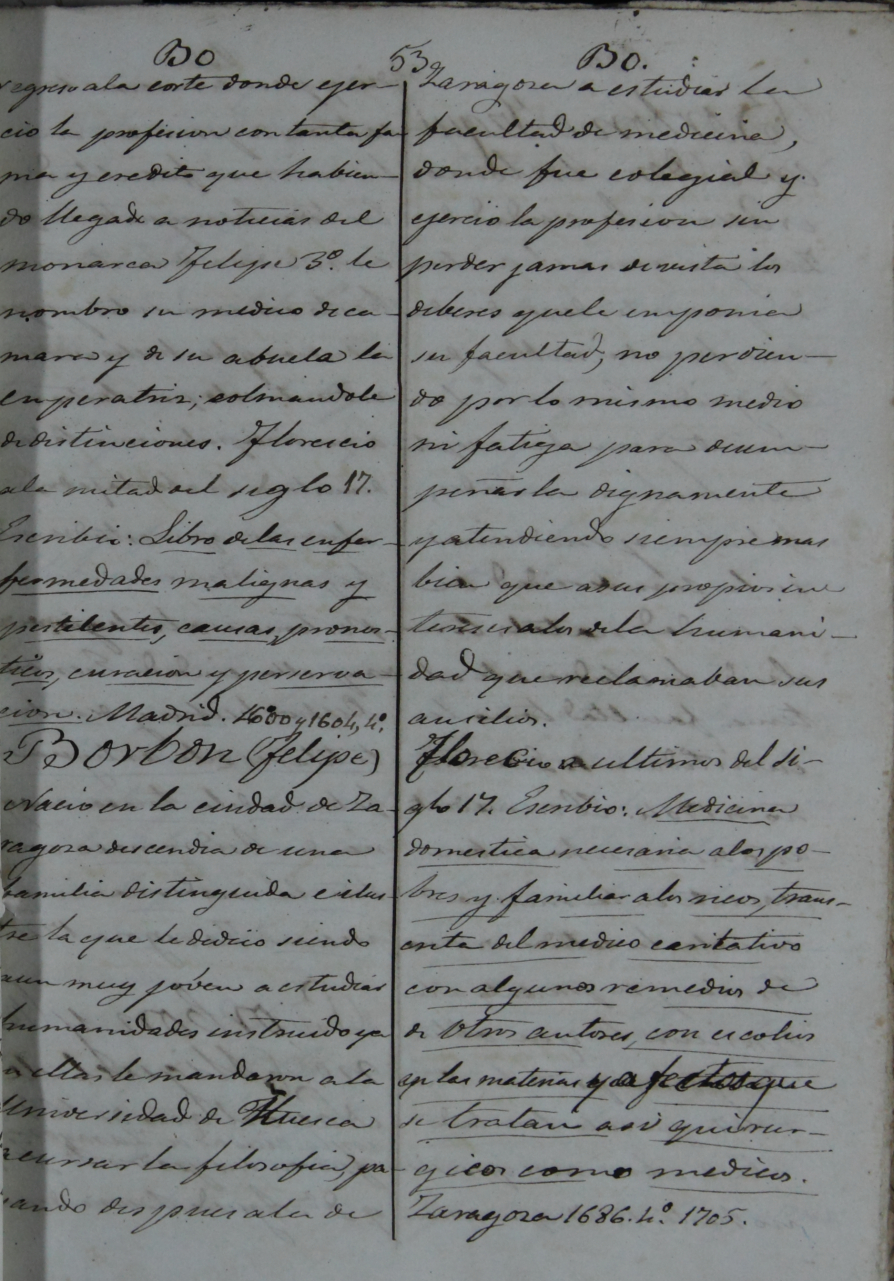 Bo
53
Bo.
regreso a la corte donde ejer-
cio la profesion con tanta fa-
ma y credito que habien-
do llegado a noticias del
monarca Felipe 3º. le
nombro su medico de ca-
mara y de su abuela la
emperatriz; colmandole
de distinciones. Florecio
a la mitad del siglo 17.
Escribio: Libro de las enfer-
fermedades malignas y
pestilentes, causas, pronos-
ticos, curacion y perserva-
cion. Madrid. 1600 y 1604, 4º.
Borbon (Felipe)
Nacio en la ciudad de Za-
ragoza descendia de una
familia distinguida e ilus-
tre la que le dedico siendo
aun muy jóven a estudiar
humanidades instruido ya
en ellas le mandaron a la
Universidad de Huesca
a cursar la filosofia, pa-
sando despues a la de
Zaragoza a estudiar la
facultad de medicina,
donde fue colegial y
ejercio la profesion sin
perder jamas de vista los
deberes que le imponia
su facultad, no perdien-
do por lo mismo medio
ni fatiga para desem-
peñarla dignamente
y atendiendo siempre mas
bien que a sus propios in
tereses a los de la humani-
dad que reclamaban sus
aucilios.
Florecio a ultimos del si-
glo 17. Escribio: Medicina
domestica necesaria a los po-
bres y familiar a los ricos, trans-
crita del medico caritativo
con algunos remedios de
de otros autores, con escolios
en las materias y afectos que
se tratan asi quirur-
gicos como medicos.
Zaragoza 1686. 4º. 1705.